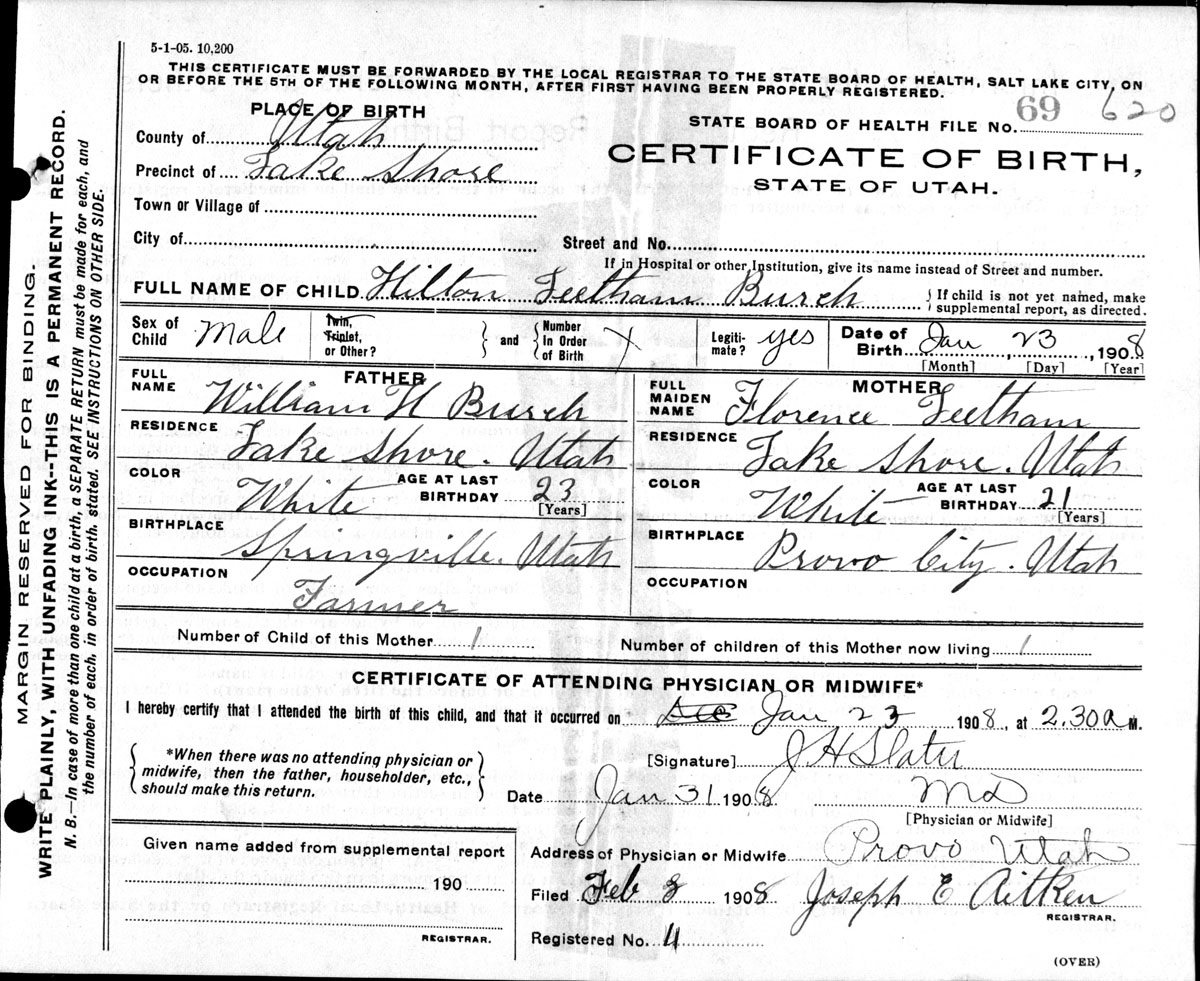 5-1-05. 10,200
THIS CERTIFICATE MUST BE FORWARDED BY THE LOCAL REGISTRAR TO THE STATE BOARD OF HEALTH, SALT LAKE CITY, ON
OR BEFORE THE 5TH OF THE FOLLOWING MONTH, AFTER FIRST HAVING BEEN PROPERLY REGISTERED.
PLACE OF BIRTH
STATE BOARD OF HEALTH FILE NO. 69 620
County of Utah
CERTIFICATE OF BIRTH,
Precinct of Lake Shore
STATE OF UTAH.
Town or Village of
City of
Street and No.
If in Hospital or other Institution, give its name instead of Street and number.
FULL NAME OF CHILD Hilton Leetham Burch
{If child is not yet named, make supplemental report, as directed.
Sex of Child Male
Twin, Triplet, or Other?
and
Number in Order of Birth
Legiti-mate? yes
Date of Birth Jan, 23, 1908
[Month] [Day] [Year]
FATHER
FULL NAME William H Burch
RESIDENCE Lake Shore. Utah
COLOR White
AGE AT LAST BIRTHDAY 23
[Years]
BIRTHPLACE Springville. Utah
OCCUPATION Farmer
MOTHER
FULL MAIDEN NAME Florence Leetham
RESIDENCE Lake Shore. Utah
COLOR White
AGE AT LAST BIRTHDAY 21
[Years]
BIRTHPLACE Provo City. Utah
OCCUPATION
Number of Child of this Mother 1
Number of children of this Mother now living 1
CERTIFICATE OF ATTENDING PHYSICIAN OR MIDWIFE*
I hereby certify that I attended the birth of this child, and that it occurred on Jan 23 1908, at 2.30a M.
*When there was no attending physician or
midwife, then the father, householder, etc.,
should make this return.
[Signature] J H Slater
Date Jan 31 1908
MD
[Physician or Midwife]
Address of Physician or Midwife Provo Utah
Given name added from supplemental report
190
REGISTRAR.
Filed Feb 8 1908 Joseph E Aitken
REGISTRAR.
Registered No. 4
(OVER)
MARGIN RESERVED FOR BINDING.
WRITE PLAINLY, WITH UNFADING INK--THIS IS A PERMANENT RECORD.
N. B.—In case of more than one child at a birth, a SEPARATE RETURN must be made for each, and
the number of each, in order of birth, stated. SEE INSTRUCTIONS ON OTHER SIDE.